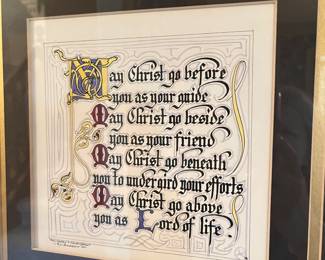 May Christ go before
you as your guide
May Christ go beside
you as your friend
May Christ go beneath
you to undergird your efforts
May Christ go above
you as Lord of life.